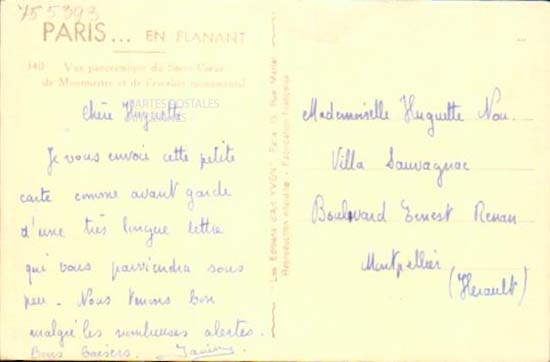 755393
PARIS... EN FLANANT
340 Vue panoramique du Sacré-Cœur
de Montmartre et de l'escalier monumental
CARTES POSTALES
Chère Huguette
Je vous envoie cette petite
carte comme avant garde
d'une très longue lettre
qui vous parviendra sous
peu - Nous tenons bon
malgré les nombreuses alertes.
Bons baisers.
Les Editions d'Art YVON
Reproduction interdite - Fabrication Française
Mademoiselle Huguette Nou.
Villa Sauvagnac
Boulevard Ernest Renan
Montpellier
(Hérault)